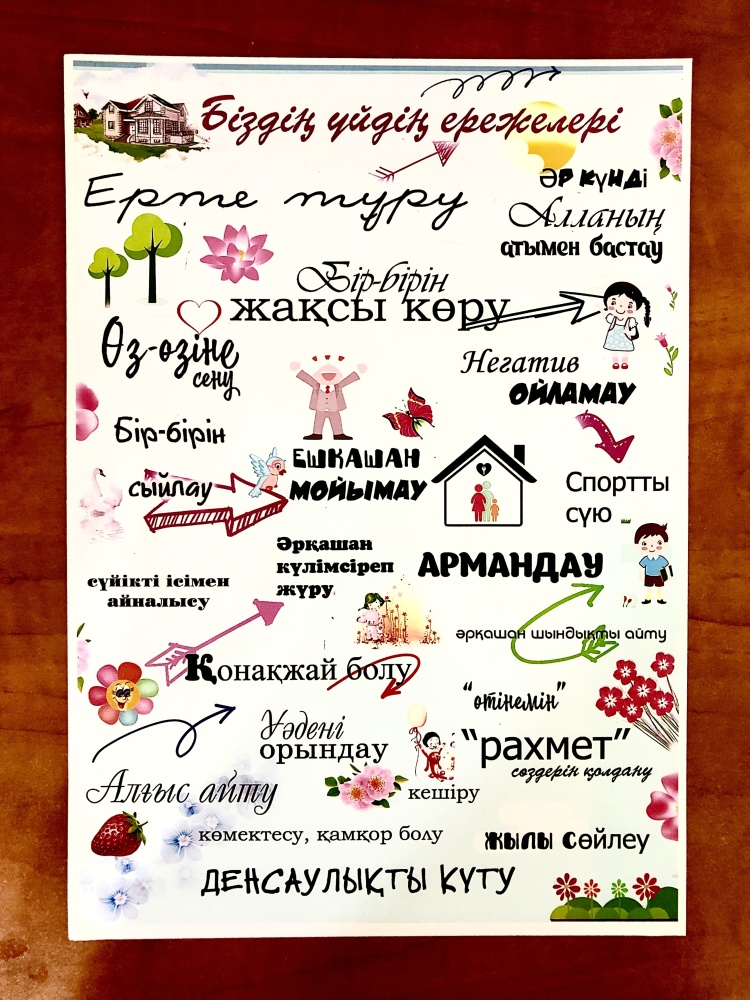 Біздің үйдің ережелері
Ерте тұру
Әр күнді
Алланың
атымен бастау
Бір-бірін
жақсы көру
Өз-өзіңе
сену
Негатив
ОЙЛАМАУ
Бір-бірін
сыйлау
ЕШҚАШАН
МОЙЫМАУ
Спортты
сүю
сүйікті ісімен
айналысу
Әрқашан
күлімсіреп
жүру
АРМАНДАУ
әрқашан шындықты айту
Қонақжай болу
"өтінемін"
Уәдені
орындау
"рахмет"
сөздерін қолдану
Алғыс айту
кешіру
көмектесу, қамқор болу
жылы сөйлеу
ДЕНСАУЛЫҚТЫ КҮТУ